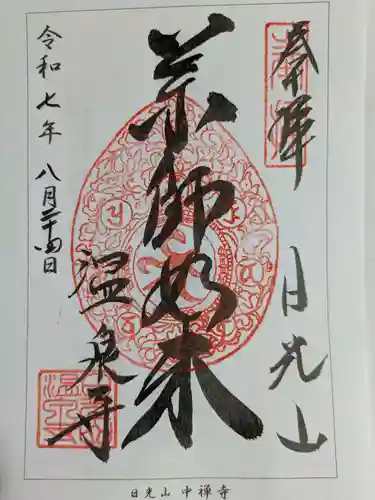 奉拝 日光山
薬師如来
温泉寺
令和七年 八月二十四日
日光山 中禅寺